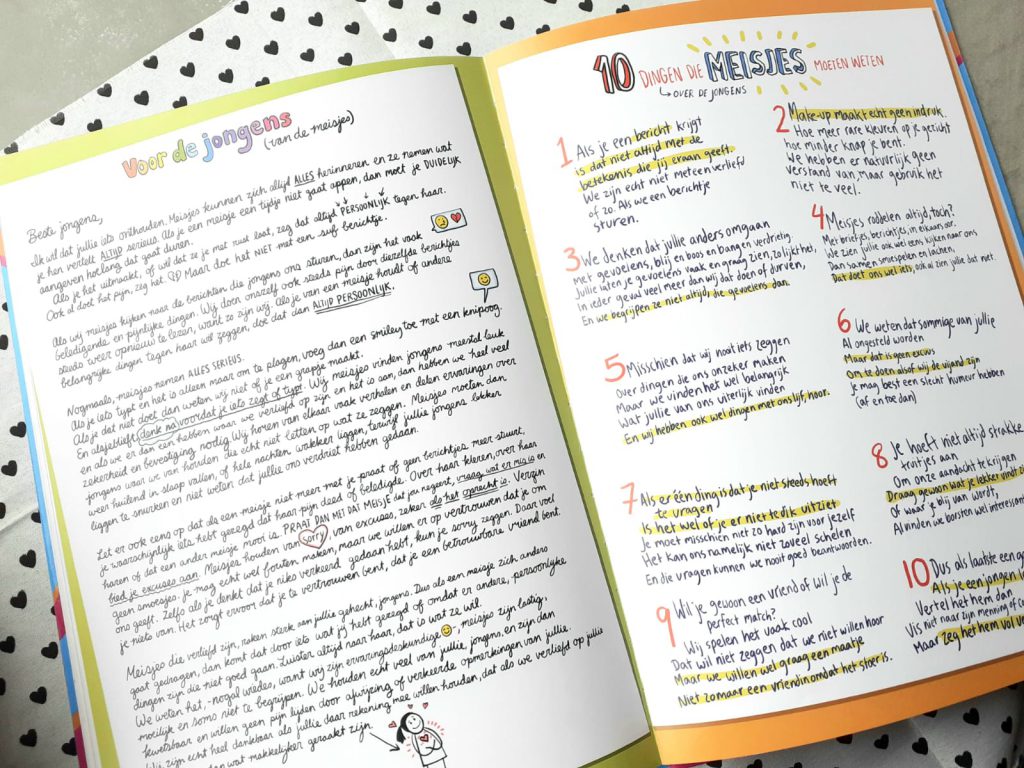 Voor de jongens
(van de meisjes)
Beste jongens,
Ik wil dat jullie iets onthouden. Meisjes kunnen zich altijd ALLES herinneren en ze nemen wat
je hen vertelt ALTIJD serieus. Als je een meisje een tijdje niet gaat appen, dan moet je DUIDELIJK
aangeven hoelang dat gaat duren.
Als je het uitmaakt, of wil dat ze je met rust laat, zeg dat altijd PERSOONLIJK tegen haar.
Ook al doet het pijn, zeg het. Maar doe het NIET met een suf berichtje.
Als wij meisjes kijken naar de berichten die jongens ons sturen, dan zijn het vaak
beledigende en pijnlijke dingen. Wij doen onszelf ook steeds pijn door diezelfde berichtjes
steeds weer opnieuw te lezen, want zo zijn wij. Als je van een meisje houdt of andere
belangrijke dingen tegen haar wil zeggen, doe dat dan ALTIJD PERSOONLIJK.
Nogmaals, meisjes nemen ALLES SERIEUS.
Als je iets typt en het is alleen maar om te plagen, voeg dan een smiley toe met een knipoog.
Als je dat niet doet dan weten wij niet of je een grapje maakt.
En alsjeblieft, denk na voordat je iets zegt of typt. Wij meisjes vinden jongens meestal leuk
en als we er dan een hebben waar we verliefd op zijn en het is aan, dan hebben we heel veel
zekerheid en bevestiging nodig. Wij horen van elkaar vaak verhalen en delen ervaringen over
jongens waar we van houden die echt niet letten op wat ze zeggen. Meisjes moeten dan
weer huilend in slaap vallen, of hele nachten wakker liggen, terwijl jullie jongens lekker
liggen te snurken en niet weten dat jullie ons verdriet hebben gedaan.
Let er ook eens op dat als een meisje niet meer met je praat of geen berichtjes meer stuurt,
je waarschijnlijk iets hebt gezegd dat haar pijn deed of beledigde. Over haar kleren, over haar
haren of dat een ander meisje mooi is. PRAAT DAN MET DAT MEISJE dat jou negeert, vraag wat er mis is en
bied je excuses aan. Meisjes houden van sorry, van excuses, zeker als het oprecht is. Verzin
geen smoesjes. Je mag echt wel fouten maken, maar we willen er op vertrouwen dat je om
ons geeft. Zelfs als je denkt dat je niks verkeerd gedaan hebt, kun je sorry zeggen. Daar voel
je niets van. Het zorgt ervoor dat je te vertrouwen bent, dat je een betrouwbare vriend bent.
Meisjes die verliefd zijn, raken sterk aan jullie gehecht, jongens. Dus als een meisje zich anders
gaat gedragen, dan komt dat door iets wat jij hebt gezegd of omdat er andere, persoonlijke
dingen zijn die niet goed gaan. Luister altijd naar haar, dat is wat ze wil.
We weten het, -nogal wiedes, want wij zijn ervaringsdeskundige -, meisjes zijn lastig,
moeilijk en soms niet te begrijpen. We houden echt veel van jullie jongens, en zijn dan
kwetsbaar en willen geen pijn lijden door afwijzing of verkeerde opmerkingen van jullie.
Wij zijn echt heel dankbaar als jullie daar rekening mee willen houden, dat als we verliefd op jullie
dan wat makkelijker geraakt zijn
10 DINGEN DIE MEISJES MOETEN WETEN
OVER DE JONGENS
1 Als je een bericht krijgt
is dat niet altijd met de
betekenis die jij eraan geeft.
We zijn echt niet meteen verliefd
of zo. Als we een berichtje
sturen.
2 Make-up maakt echt geen indruk.
Hoe meer rare kleuren op je gezicht
hoe minder knap je bent.
We hebben er natuurlijk geen
verstand van, maar gebruik het
niet te veel.
3 We denken dat jullie anders omgaan
Met gevoelens, blij en boos en bang en verdrietig.
Jullie laten je gevoelens vaak en graag zien, zo lijkt het,
In ieder geval veel meer dan wij dat doen of durven,
En we begrijpen ze niet altijd, die gevoelens dan.
4 Meisjes roddelen altijd, toch?
Met briefjes, berichtjes, in elkaars oor.
We zien jullie ook wel eens kijken naar ons
Dan samen smoespelen en lachen.
Dat doet ons wel iets, ook al zien jullie dat niet.
5 Misschien dat wij nooit iets zeggen
Over dingen die ons onzeker maken
Maar we vinden het wel belangrijk
Wat jullie van ons uiterlijk vinden
En wij hebben ook wel dingen met ons lijf, hoor.
6 We weten dat sommige van jullie
Al ongesteld worden
Maar dat is geen excuus
Om te doen alsof wij de vijand zijn
Je mag best een slecht humeur hebben
(af en toe dan)
7 Als er één ding is dat je niet steeds hoeft
te vragen
Is het wel of je er niet te dik uitziet
Je moet misschien niet zo hard zijn voor jezelf
Het kan ons namelijk niet zoveel schelen
En die vragen kunnen we nooit goed beantwoorden.
8 Je hoeft niet altijd strakke
truitjes aan
Om onze aandacht te krijgen
Draag gewoon wat je lekker vindt z
Of waar je blij van wordt,
Al vinden we borsten wel interessant
9 Wil je gewoon een vriend of wil je de
perfect match?
Wij spelen het vaak cool
Dat wil niet zeggen dat we niet willen hoor
Maar we willen wel graag een maatje
Niet zomaar een vriendin omdat het stoer is.
10 Dus als laatste een
Als je een jongen
Vertel het hem dan
Vis niet naar zijn menning of
Maar zeg het hem vol